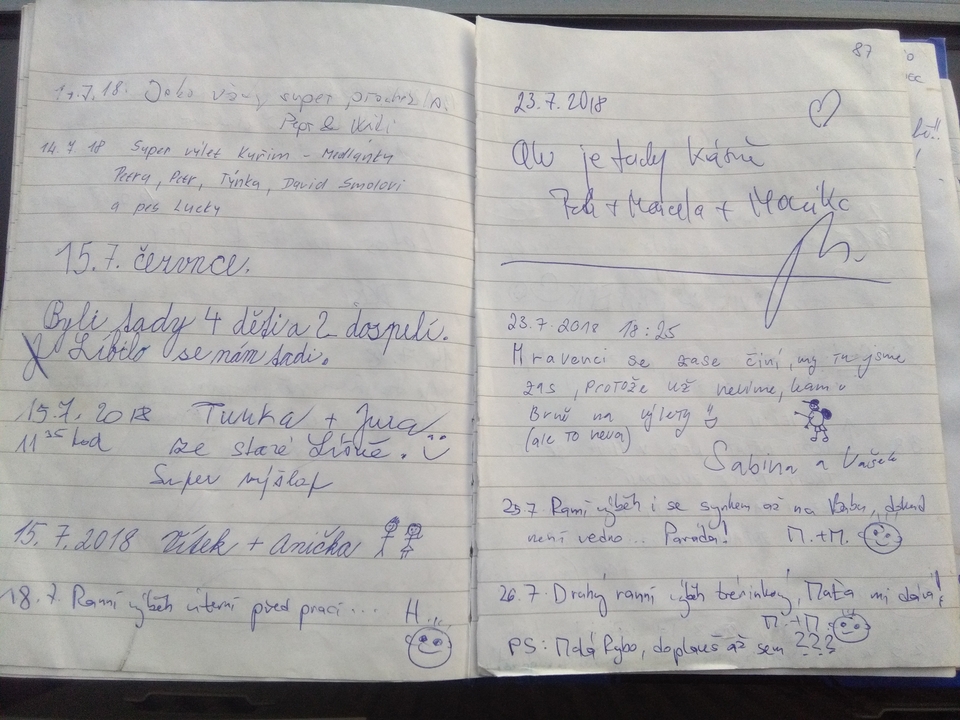 7.18. Jako vždy super
Pepr & Vili
14.7 18 Super výlet Kuřim - Medlánky
Petra, Petr, Týnka, David Smolovi
a pes Lucky
15.7. července.
Byli tady 4 děti a 2 dospelí.
Líbilo se nám tadi.
15.7. 2018 Tunka + Jura
11 35 hod ze staré Líšně.
Super výšlap
15.7.2018 Vítek + Anička
18.7. Ranní výběh úterní před prací.... H...
87
23.7.2018
je tady krásně
+ Marcela +
23.7.2018 18:25
Mravenci se zase činí, my tu jsme
zas, protože už nevíme, kam v
Brně na výlety
(ale to neva)
Sabina a Vašek
25.7. Ranní výběh i se synkem až na Babu, dokud
není vedno... Paráda! M.+M.
26.7. Druhý ranní výběh tréninkový, Maťa mi dává!
M.+M.
PS: Milá Rybo, doplaveš až sem ???